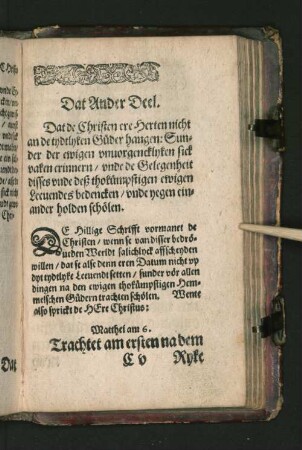 Dat Ander Deel.
Dat de Christen ere Herten nicht
an de tydtlyken Güder hangen: Sun-
der der ewigen vnuorgencklyken sick
vaken erinnern / vnde de Gelegenheit
disses vnde deß thokümpstigen ewigen
Leeuendes bedencken / vnde yegen ein-
ander holden schölen.
DE Hillige Schrifft vormanet de
Christen / wenn se van disser bedrö-
ueden Werldt salichlyck affscheyden
willen / dat se alse denn eren Datum nicht vp
dyt tydtlyke Leeuendt setten / sunder vör allen
dingen na den ewigen thokümpstigen Hem-
melschen Güdern trachten schölen. Wente
also sprickt de HEre Christus:
Matthei am 6.
Trachtet am ersten na dem
C v Ryke
Dat